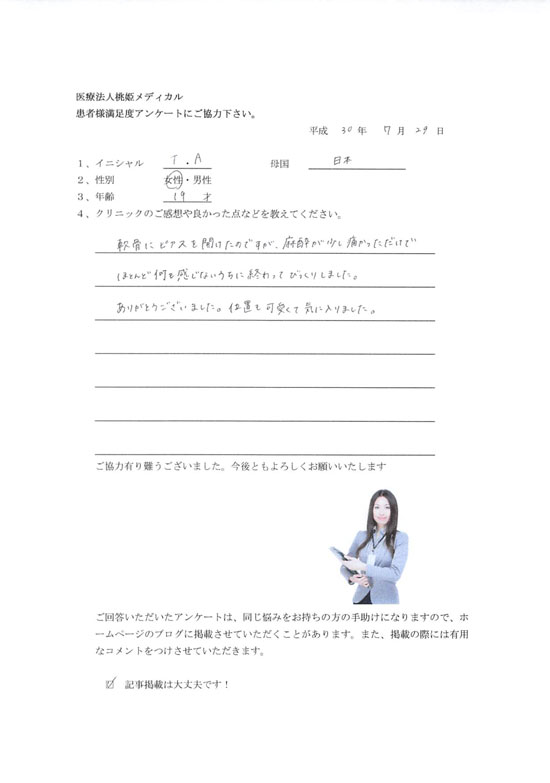 医療法人桃姫メディカル
患者様満足度アンケートにご協力下さい。
平成 30 年 7 月 29 日
1、イニシャル T.A 母国 日本
2、性別 女性・男性
3、年齢 19 才
4、クリニックのご感想や良かった点などを教えてください。
軟骨にピアスを開けたのですが、麻酔が少し痛かっただけで
ほとんど何も感じないうちに終わってびっくりしました。
ありがとうございました。位置も可愛くて気に入りました。
ご協力有り難うございました。今後ともよろしくお願いいたします
ご回答いただいたアンケートは、同じ悩みをお持ちの方の手助けになりますので、ホ
ームページのブログに掲載させていただくことがあります。また、掲載の際には有用
なコメントをつけさせていただきます。
☑ 記事掲載は大丈夫です！